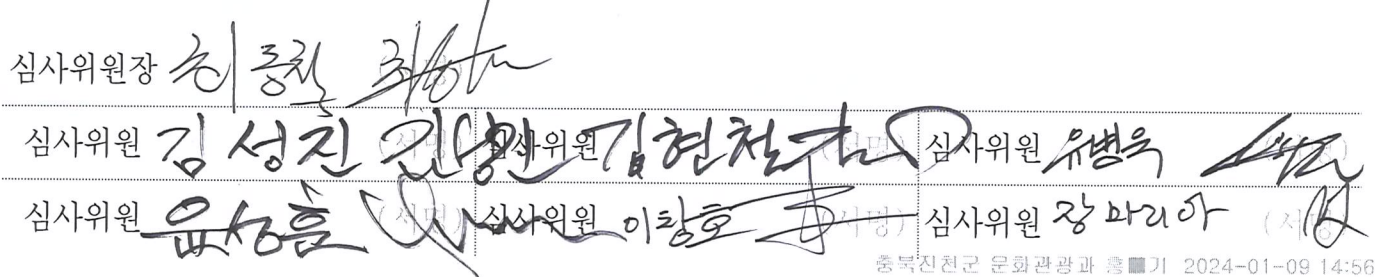 심사위원장 최동철 (서명)
심사위원 김성진 (서명) 심사위원 김현철 (서명) 심사위원 유병욱 (서명)
심사위원 윤성흠 (서명) 심사위원 이창호 (서명) 심사위원 장마리아 (서명)
충북진천군 문화관광과 기 2024-01-09 14:56